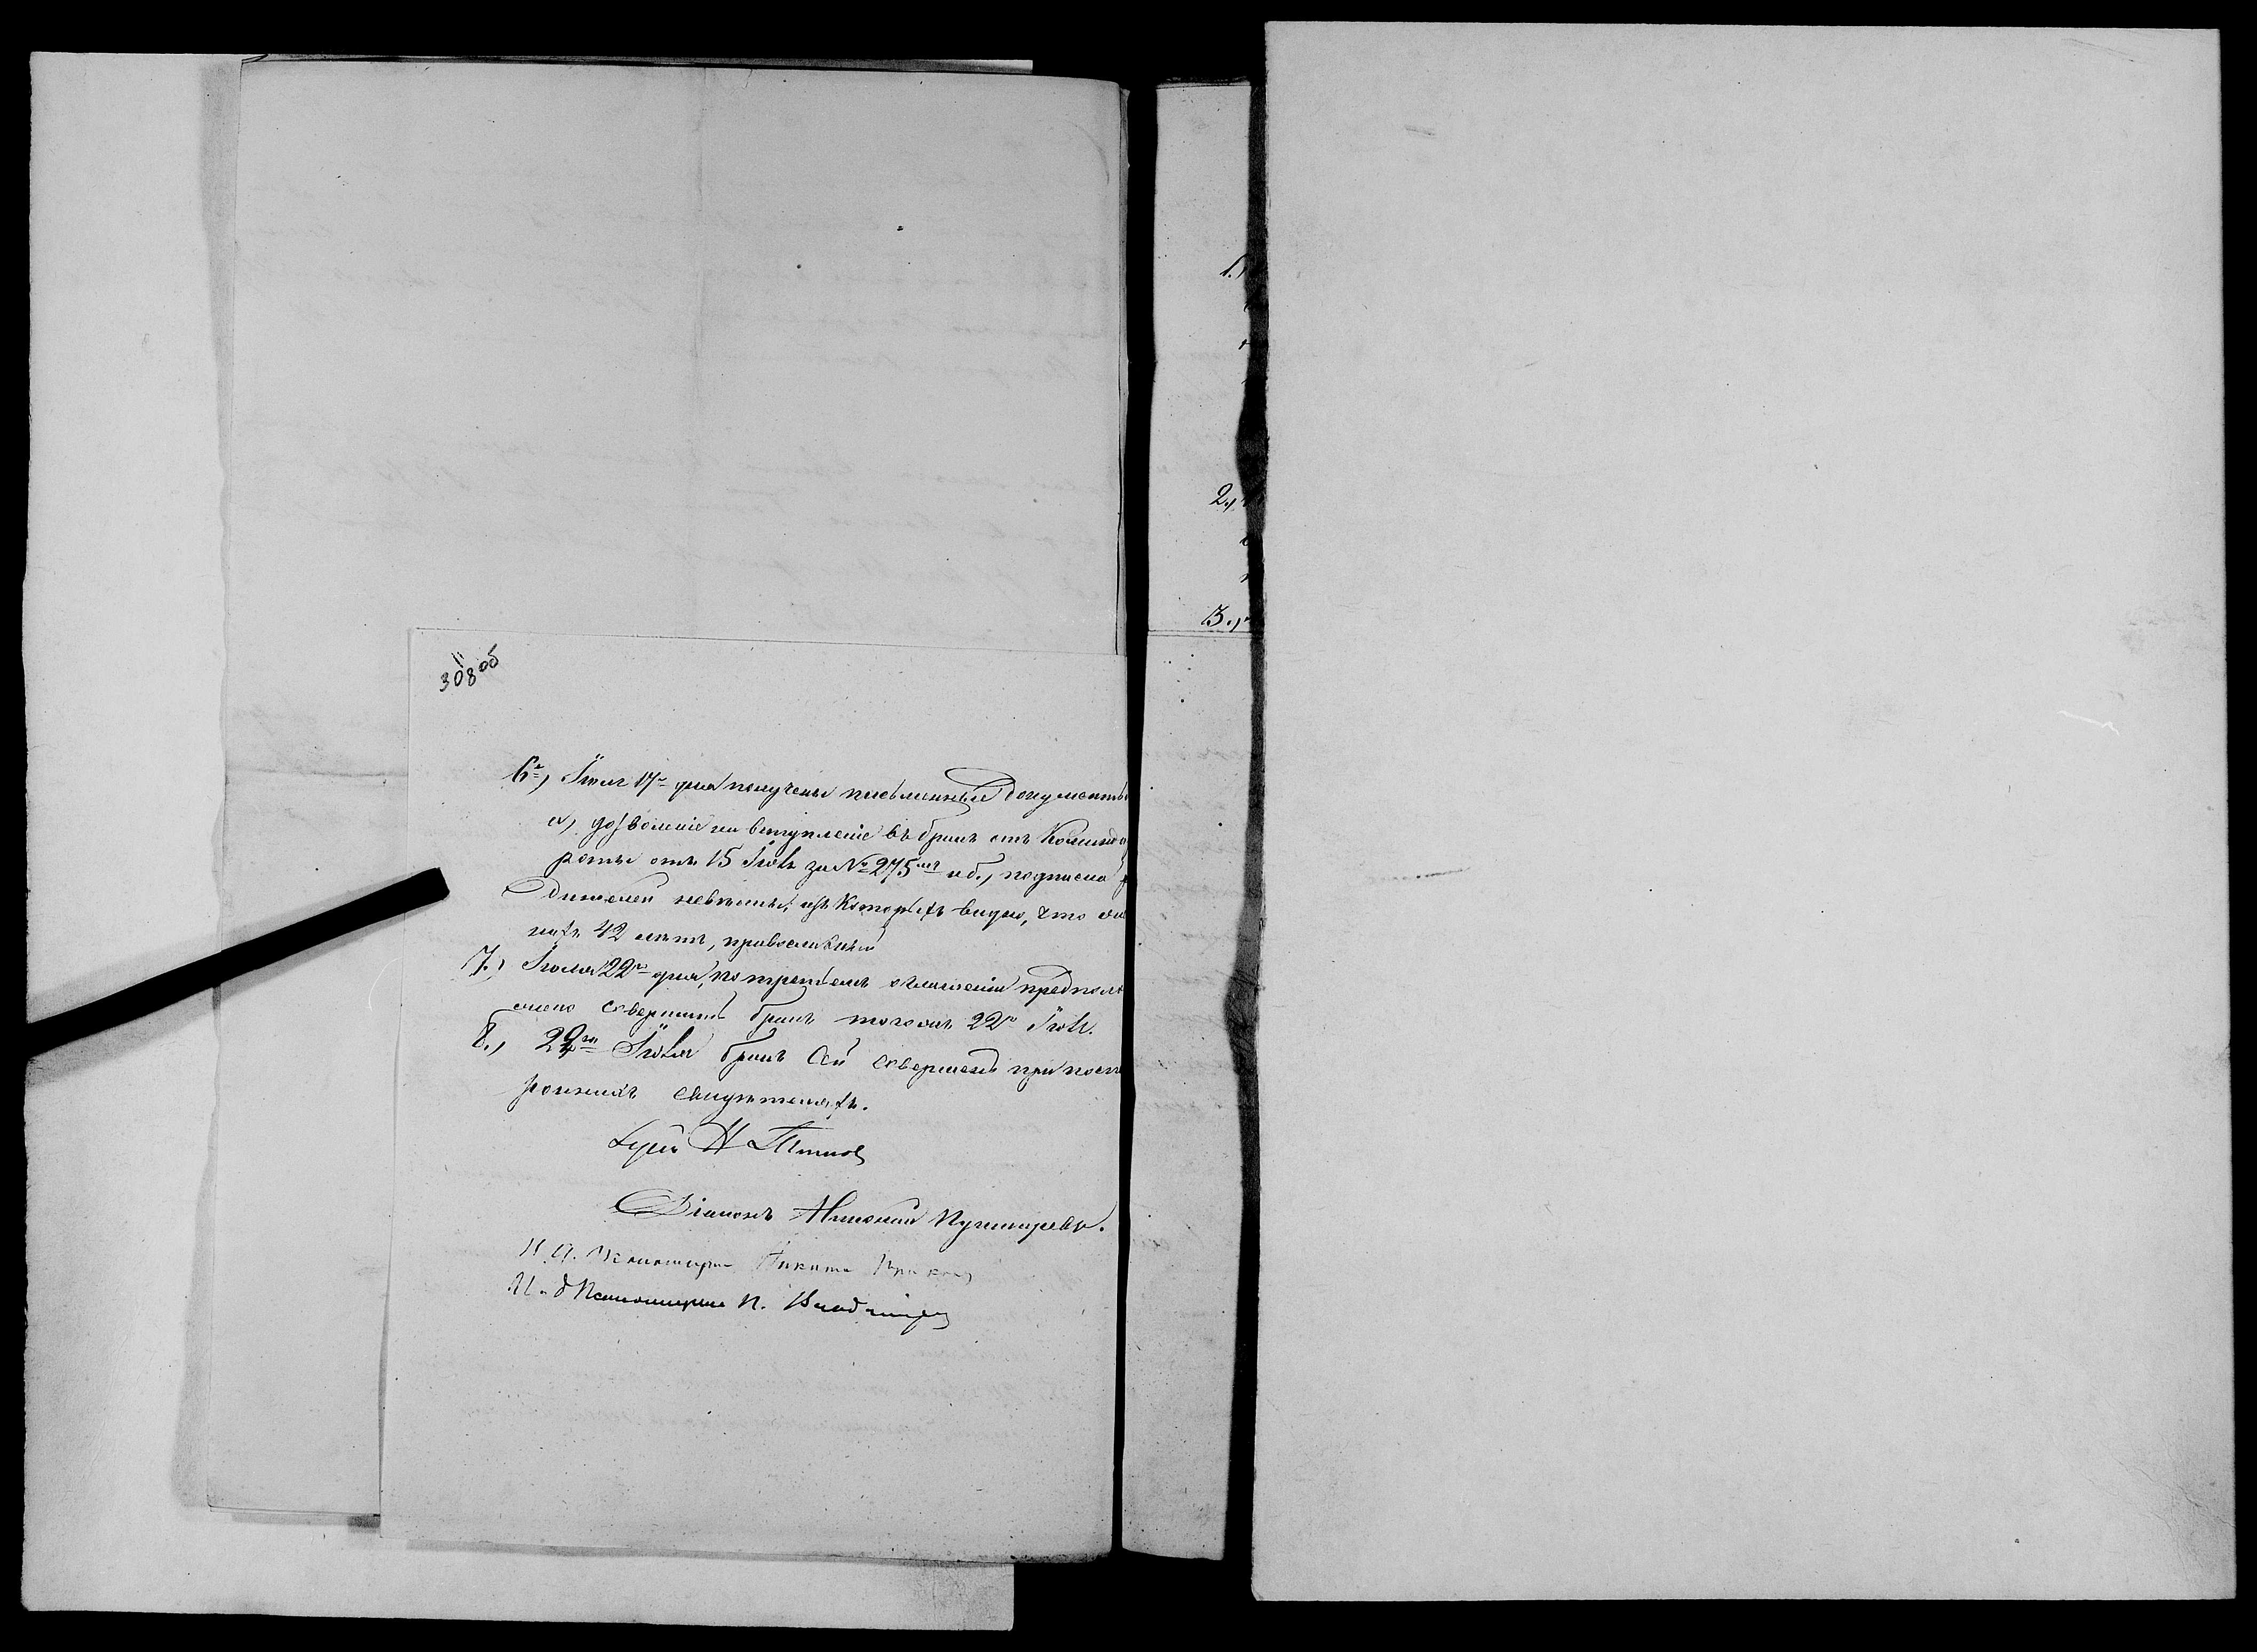 308 об
6е) Іюля 17го дня получены письменные документы
а) дозволеніе на вступленіе въ бракъ отъ Команд
роты отъ 15 Іюля за № 275мъ и б., подписка р
дителей невѣсты, изъ которыхъ видно, что же
нихъ 42 лѣтъ, православный
7.) Іюля 22го дня, по третьемъ оглашеніи предполо
жено совершить бракъ тогожъ 22го Іюля.
8., 22го Іюля бракъ сей совершенъ при посто
роннихъ свидѣтеляхъ.
Іерей Н
Діаконъ Николай Пушкаревъ.
И. д. Псаломщика Никита
И. д Псаломщика П.
1.)
2.,
3.,